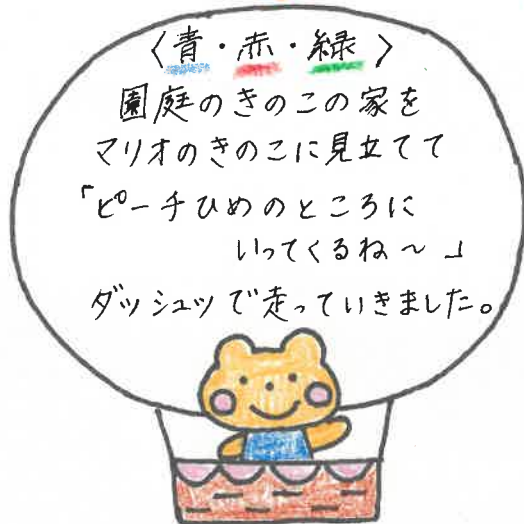 〈青・赤・緑〉
園庭のきのこの家を
マリオのきのこに見立てて
「ピーチひめのところに
いってくるね～」
ダッシュッで走っていきました。